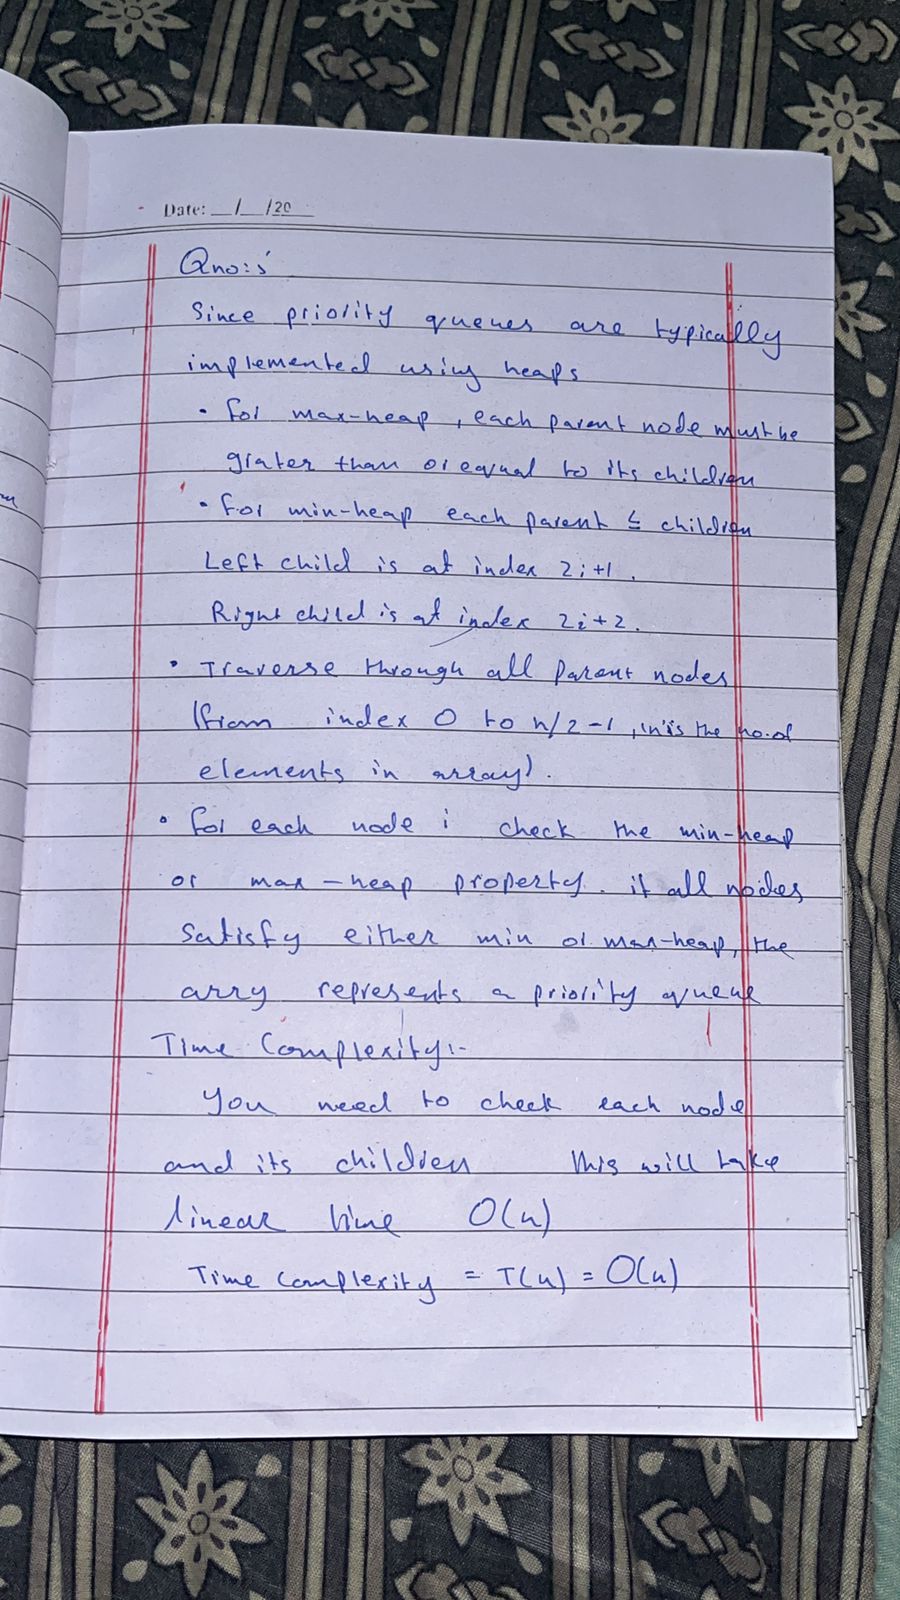 Date: __/__/20__
Qno:5
Since priority queues are typically
implemented using heaps
• For max-heap, each parent node must be
grater than or equal to its children
• For min-heap each parent ≤ children
Left child is at index 2i+1.
Right child is at index 2i+2.
• Traverse through all parent nodes
(from index 0 to n/2-1, 'n' is the no. of
elements in array).
• For each node i check the min-heap
or max-heap property. if all nodes
satisfy either min or max-heap, the
arry represents a priority queue
Time Complexity:-
You need to check each node
and its children this will take
linear time O(n)
Time complexity = T(n) = O(n)